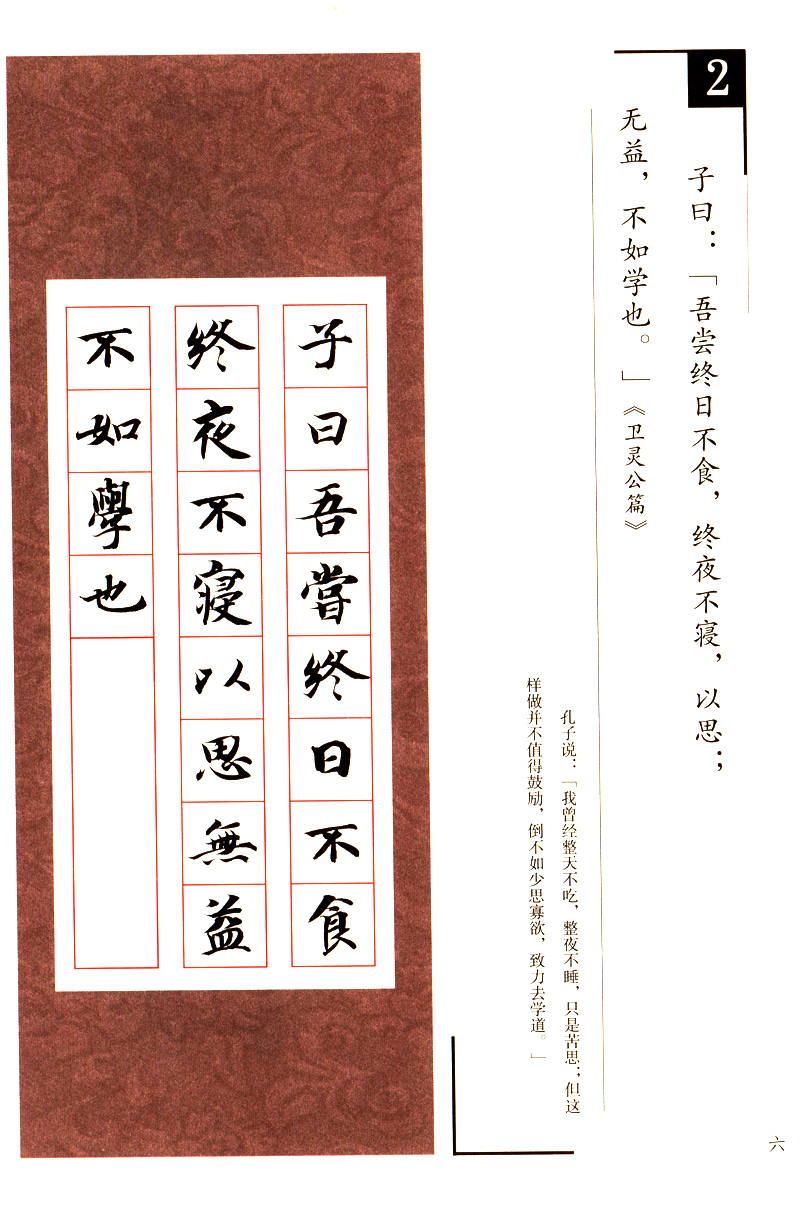 2
子曰：「吾尝终日不食，终夜不寝，以思；
无益，不如学也。」《卫灵公篇》
孔子说：「我曾经整天不吃，整夜不睡，只是苦思；但这
样做并不值得鼓励，倒不如少思寡欲，致力去学道。」
子曰吾嘗終日不食
終夜不寢以思無益
不如學也
六